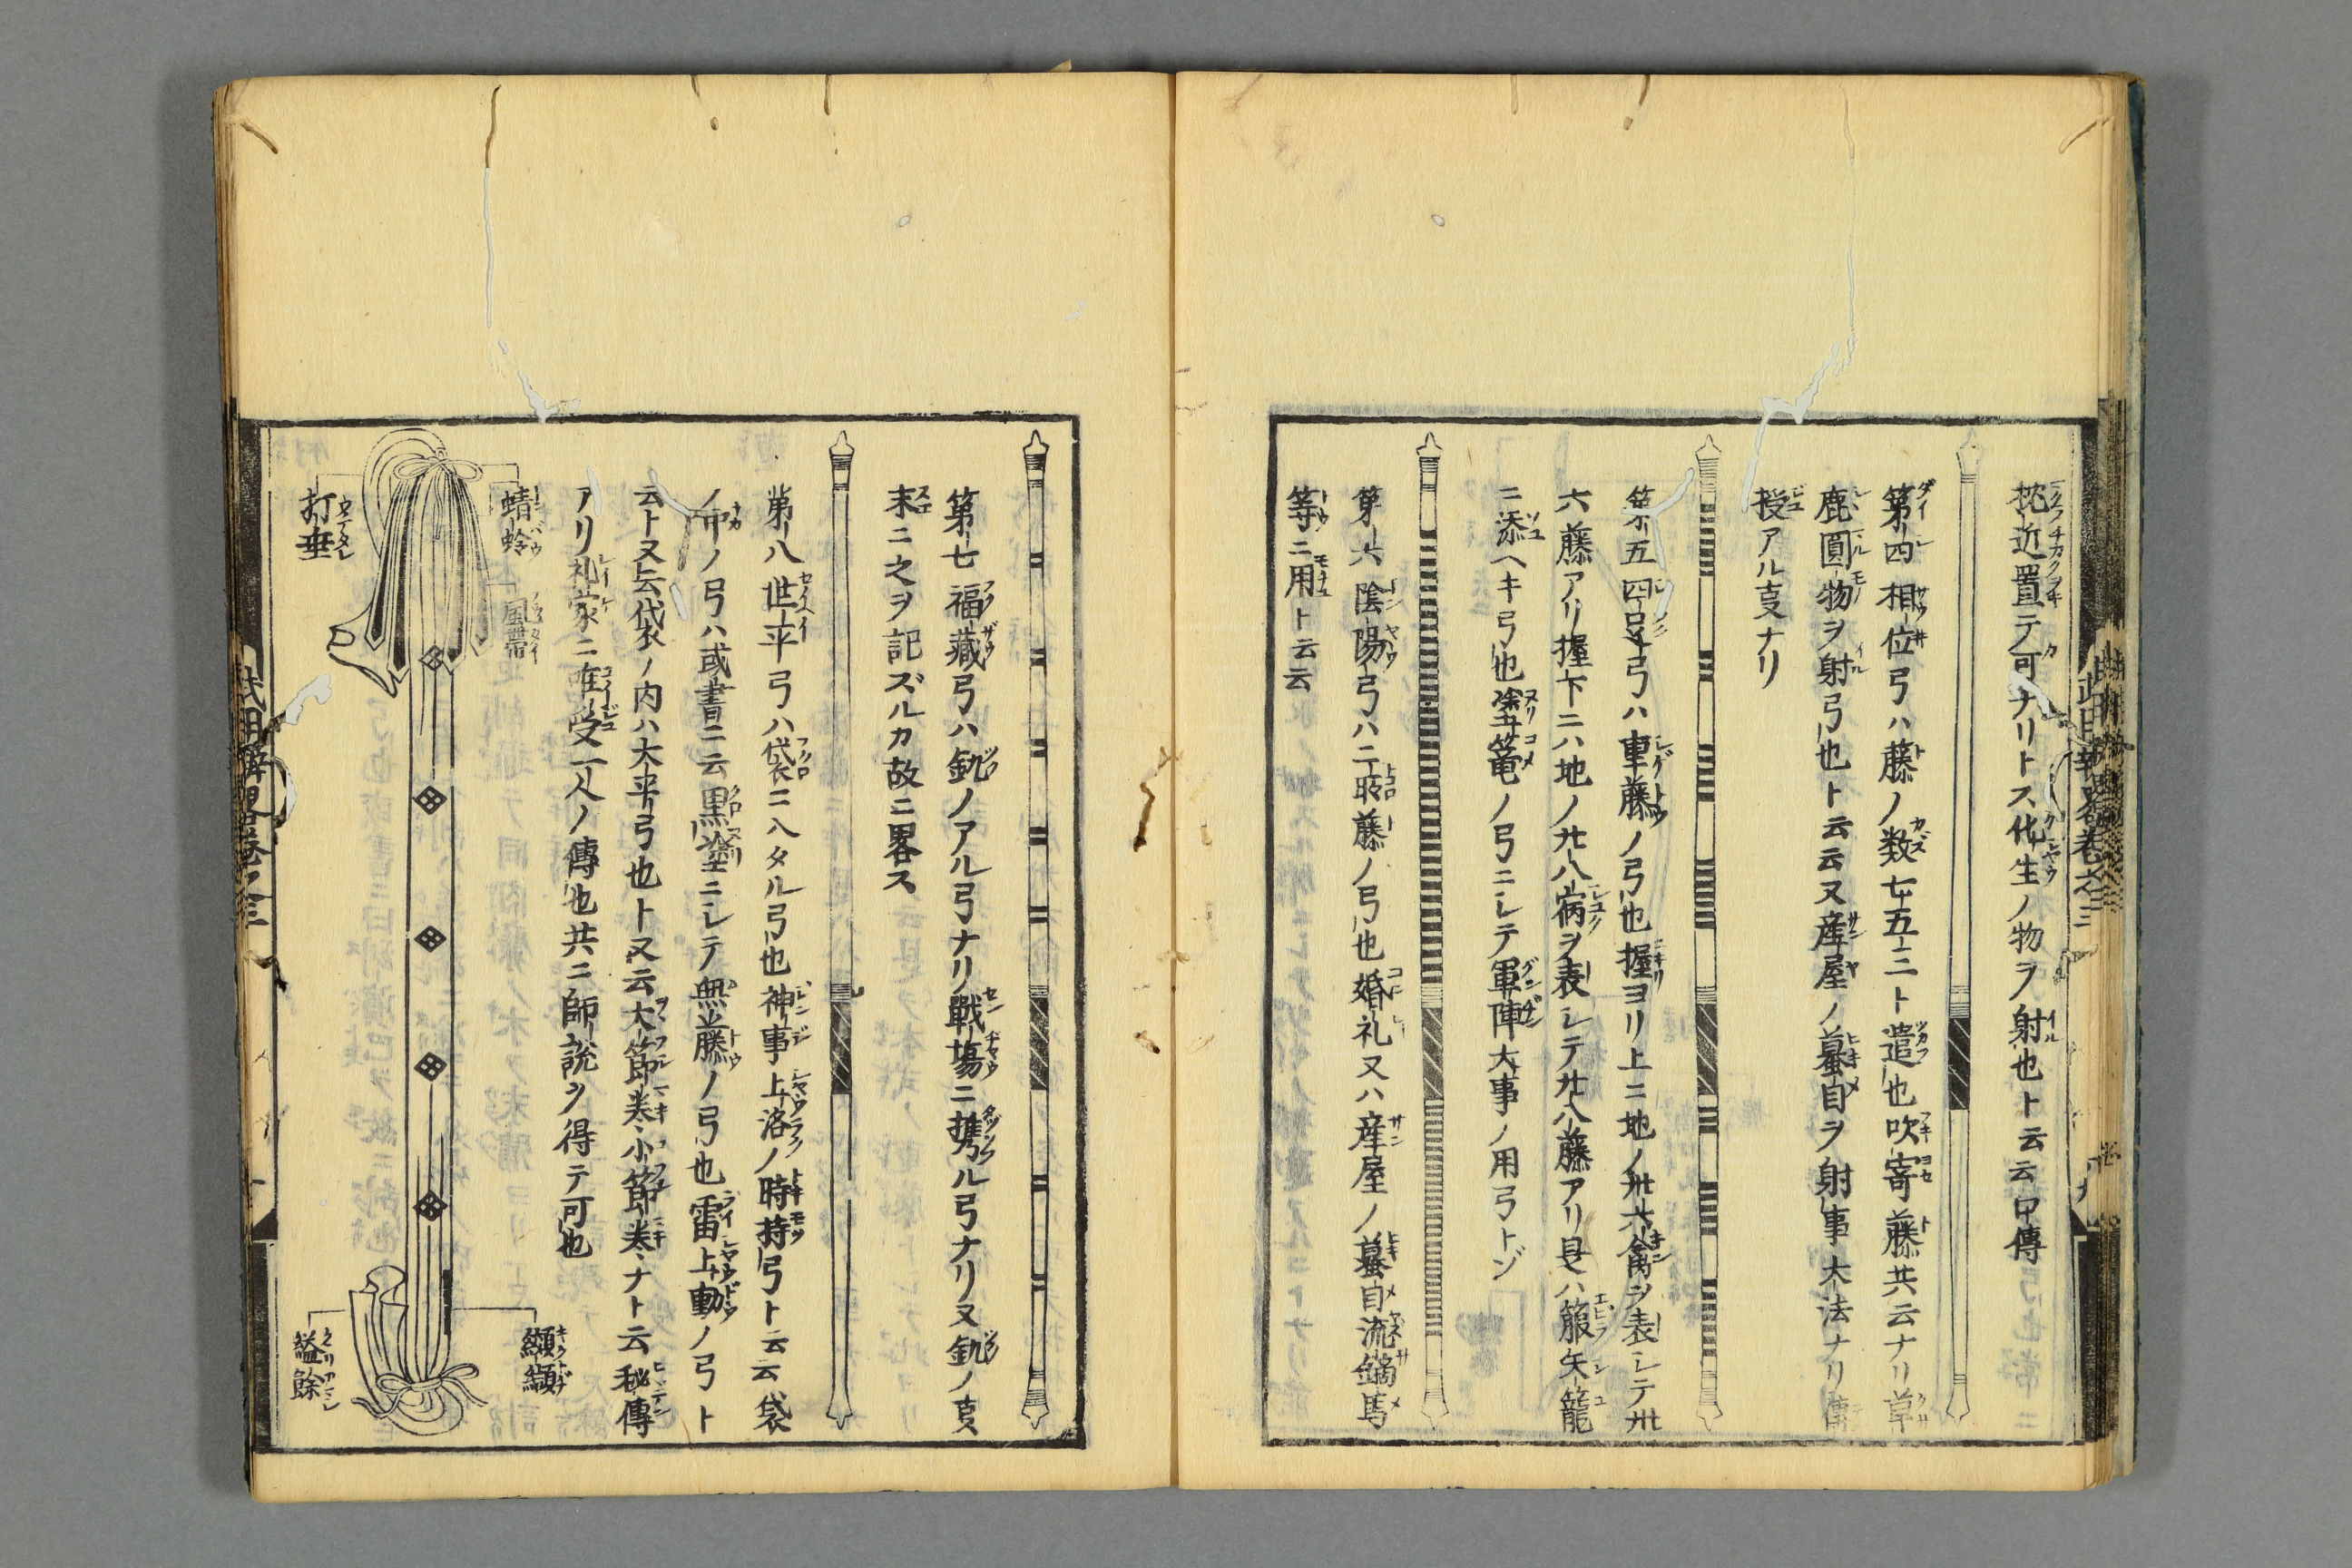 枕近置テ可ナリトス化生ノ物ヲ射也ト云云口傳
第四相位弓ハ藤ノ数七五三ト遣也吹寄藤共云ナリ草
鹿圓物ヲ射弓也ト云云又産屋ノ蟇目ヲ射事大法ナリ傳
授アル叓ナリ
第五四足弓ハ重藤ノ弓也握ヨリ上ニ地ノ卅六禽ヲ表シテ卅
六藤アリ握下ニハ地ノ廾八宿ヲ表シテ廾八藤アリ是ハ箙矢籠
ニ添ヘキ弓也塗篭ノ弓ニシテ軍陣大事ノ用弓トゾ
第六陰陽弓ハ二所藤ノ弓也婚礼又ハ産屋ノ蟇目流鏑馬
等ニ用ト云云
第七福藏弓ハ釻ノアル弓ナリ戰場ニ携ル弓ナリ又釻ノ叓
末ニ之ヲ記ズルカ故ニ畧ス
第八世平弓ハ袋ニ入タル弓也神事上洛ノ時持弓ト云云袋
ノ中ノ弓ハ或書ニ云黒塗ニシテ無藤ノ弓也雷上動ノ弓ト
云ト又云袋ノ内ハ太平弓也ト又云大節巻小節巻ナト云秘傳
アリ礼家ニ唯受一人ノ傳也共ニ師説ヲ得テ可也
蜻蛉
風帯
打垂
纐纈
縊餘
武用辨畧巻之三